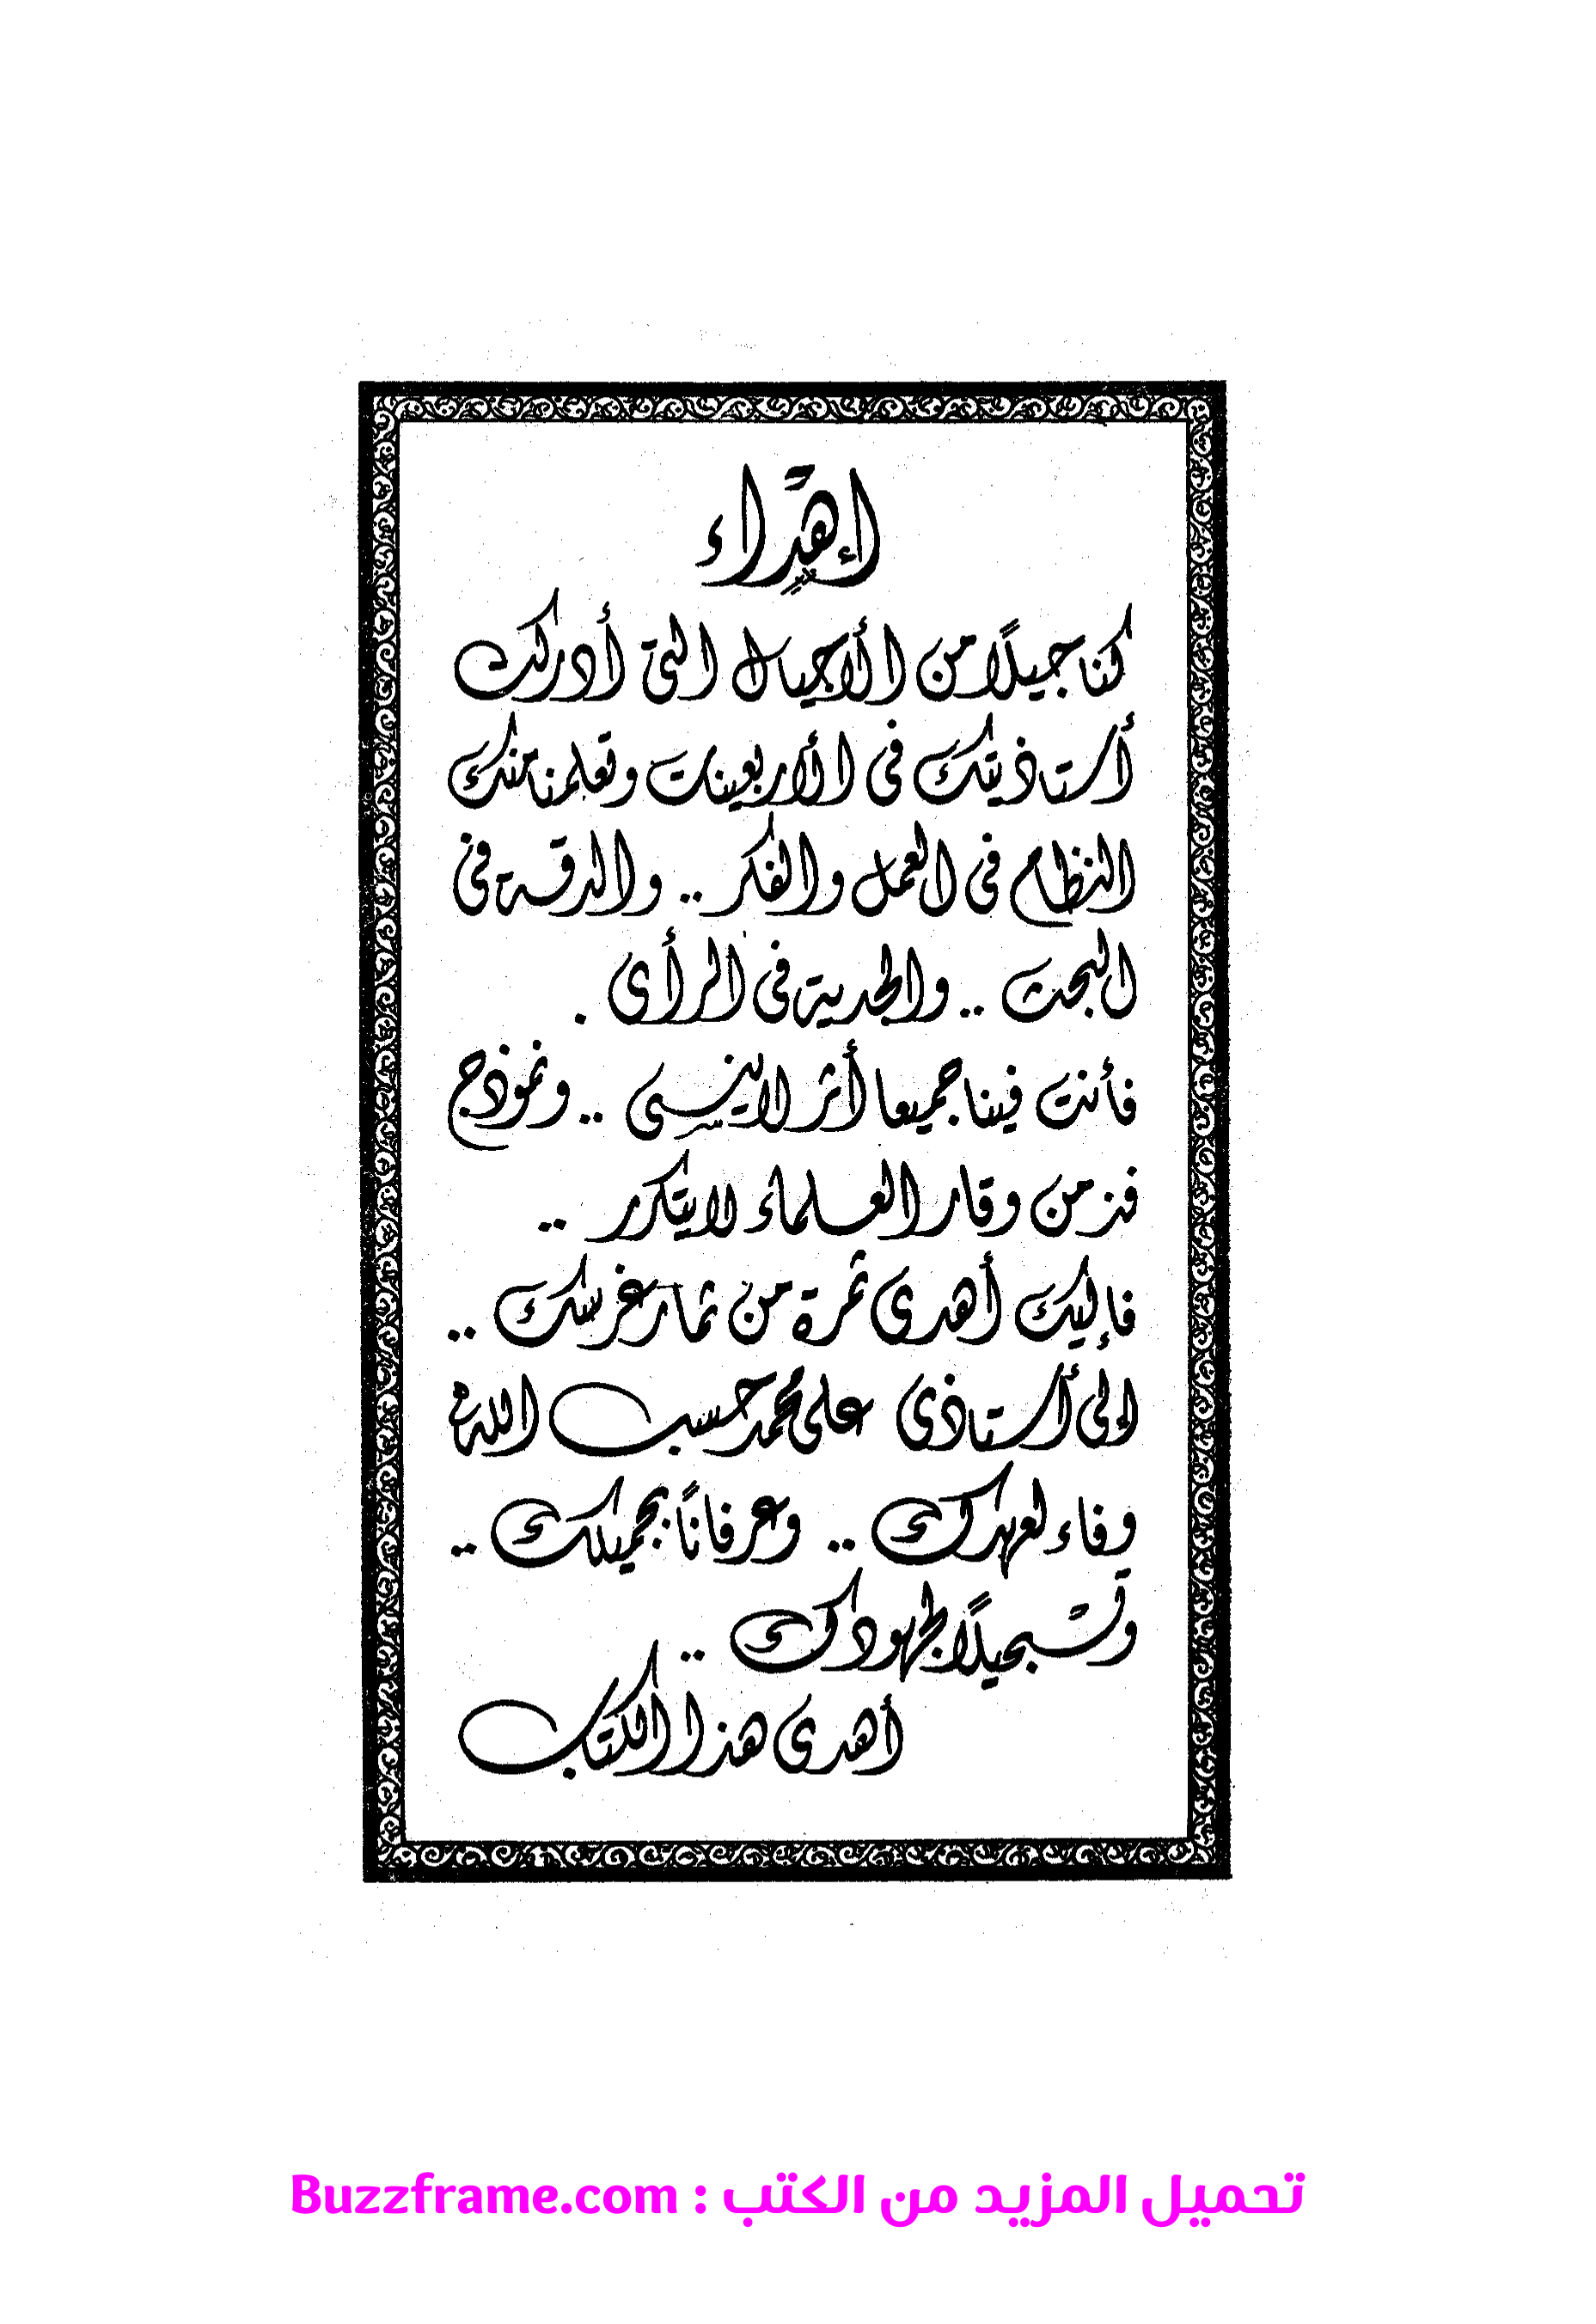 إهداء
كنا جيلاً من الأجيال التى أدركت
أستاذيتك فى الأربعينات وتعلمنا منك
النظام فى العمل والفكر .. والدقة فى
البحث .. والجدية فى الرأى .
فأنت فينا جميعا أثر لاينسى .. ونموذج
فذ من وقار العلماء لا يتكرر ..
فإليك أهدى ثمرة من ثمار غرسك ..
إلى أستاذى على محمد حسب الله
وفاء لعهدك .. وعرفاناً بجميلك ..
وتسجيلاً لجهودك ..
أهدى هذا الكتاب
تحميل المزيد من الكتب : Buzzframe.com